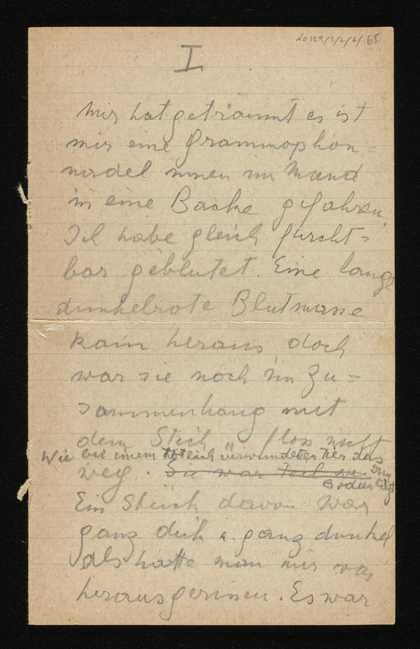 I
Mir hat geträumt es ist
mir eine Grammophon-
nadel innen im Mund
in eine Backe gefahren.
Ich habe gleich furcht-
bar geblutet. Eine lange
dunkelrote Blutmasse
kam heraus doch
war sie noch im Zu-
sammenhang mit
dem Stich, floss nicht
Wie bei einem tötlich verwundeten Tier das am
weg. Sie war
Boden liegt
Ein Stück davon war
ganz dick u. ganz dunkel
als hätte man mir
herausgerissen. Es war